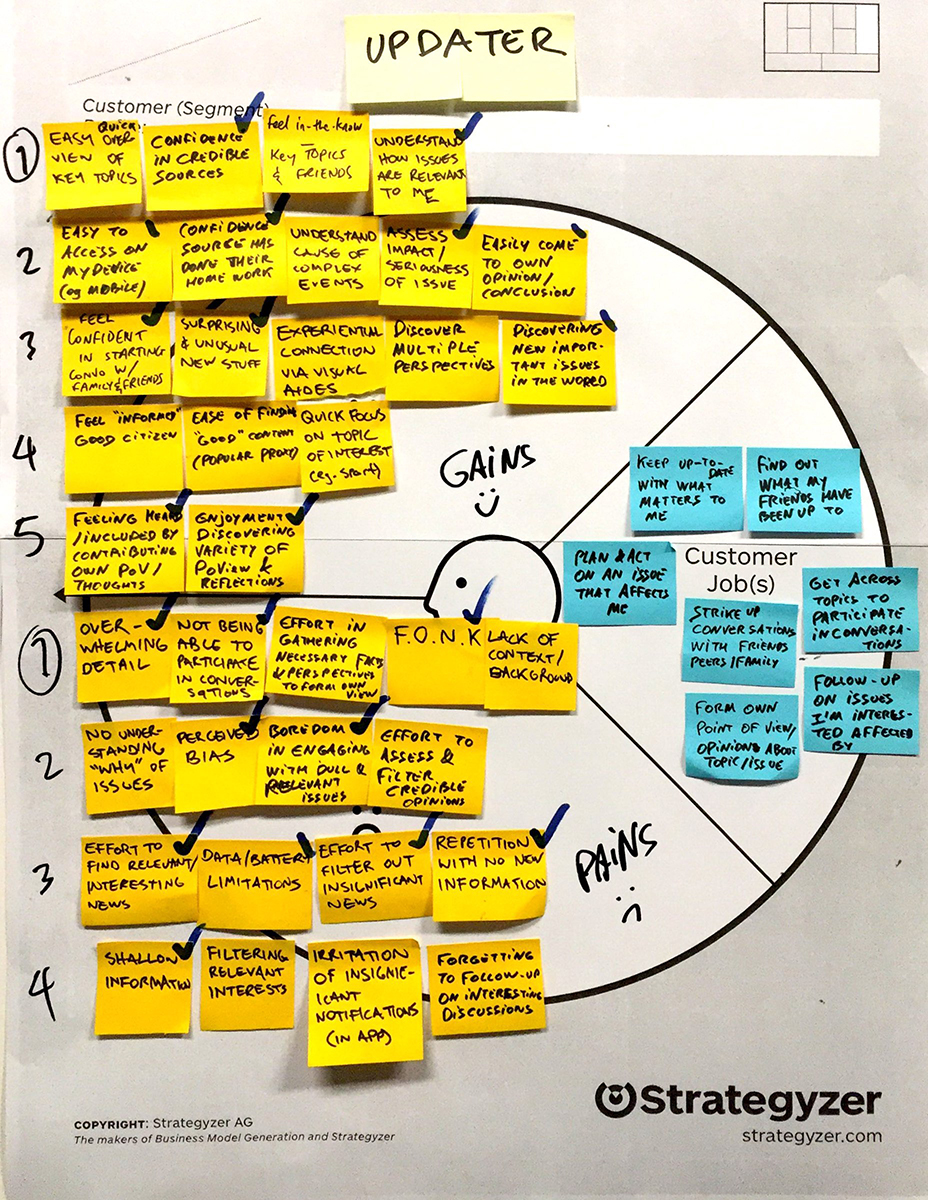 UPDATER
Customer (Segment)
1
EASY QUICK OVER-
VIEW OF
KEY TOPICS
CONFIDENCE
IN CREDIBLE
SOURCES
Feel in-the-know
—
KEY TOPICS
& FRIENDS
UNDERSTAND
HOW ISSUES
ARE RELEVANT
TO ME
2
EASY TO
ACCESS ON
MY DEVICE
(eg MOBILE)
CONFIDENCE
SOURCE HAS
DONE THEIR
HOME WORK
UNDERSTAND
CAUSE OF
COMPLEX
EVENTS
ASSESS
IMPACT/
SERIOUSNESS
OF ISSUE
EASILY COME
TO OWN
OPINION/
CONCLUSION
3
FEEL
CONFIDENT
IN STARTING
CONVO W/
FAMILY & FRIENDS
SURPRISING
& UNUSUAL
NEW STUFF
EXPERIENTIAL
CONNECTION
VIA VISUAL
AIDES
DISCOVER
MULTIPLE
PERSPECTIVES
DISCOVERING
NEW IMPOR-
TANT ISSUES
IN THE WORLD
4
FEEL "INFORMED"
GOOD CITIZEN
EASE OF FINDING
"GOOD" CONTENT
(POPULAR PROXY)
QUICK FOCUS
ON TOPIC
OF INTEREST
(eg. Sport)
GAINS
5
FEELING HEARD
/INCLUDED BY
CONTRIBUTING
OWN POV/
THOUGHTS
ENJOYMENT
DISCOVERING
VARIETY OF
POVIEW &
REFLECTIONS
Customer
Job(s)
KEEP UP-TO-
DATE
WITH WHAT
MATTERS TO
ME
FIND OUT
WHAT MY
FRIENDS HAVE
BEEN UP TO
PLAN & ACT
ON AN ISSUE
THAT AFFECTS
ME
GET ACROSS
TOPICS TO
PARTICIPATE
IN CONVERSA-
TIONS
STRIKE UP
CONVERSATIONS
WITH FRIENDS
PEERS/FAMILY
FOLLOW-UP
ON ISSUES
I'M INTERES-
TED AFFECTED
BY
FORM OWN
POINT OF VIEW/
OPINIONS ABOUT
TOPIC/ISSUE
1
OVER-
WHELMING
DETAIL
NOT BEING
ABLE TO
PARTICIPATE
IN CONVER-
SATIONS
EFFORT IN
GATHERING
NECESSARY FACTS
& PERSPECTIVES
TO FORM OWN
VIEW
F.O.N.K
LACK OF
CONTEXT/
BACKGROUND
2
NO UNDER-
STANDING
"WHY" OF
ISSUES
PERCEIVED
BIAS
BOREDOM
IN ENGAGING
WITH DULL &
RELEVANT
ISSUES
EFFORT TO
ASSESS &
FILTER
CREDIBLE
OPINIONS
3
EFFORT TO
FIND RELEVANT/
INTERESTING
NEWS
DATA/BATTERY
LIMITATIONS
EFFORT TO
FILTER OUT
INSIGNIFICANT
NEWS
REPETITION
WITH NO NEW
INFORMATION
PAINS
4
SHALLOW
INFORMATION
FILTERING
RELEVANT
INTERESTS
IRRITATION
OF INSIGNIF-
ICANT
NOTIFICATIONS
(IN APP)
FORGETTING
TO FOLLOW-UP
ON INTERESTING
DISCUSSIONS
COPYRIGHT: Strategyzer AG
The makers of Business Model Generation and Strategyzer
Strategyzer
strategyzer.com